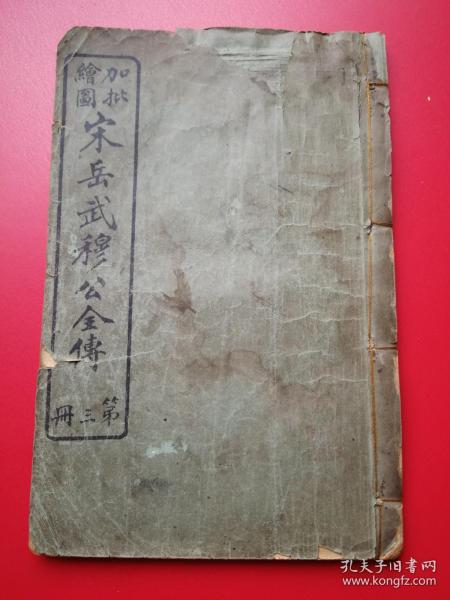 加批
繪圖
宋岳武穆公全傳
第三冊
孔夫子旧书网
www.kongfz.com